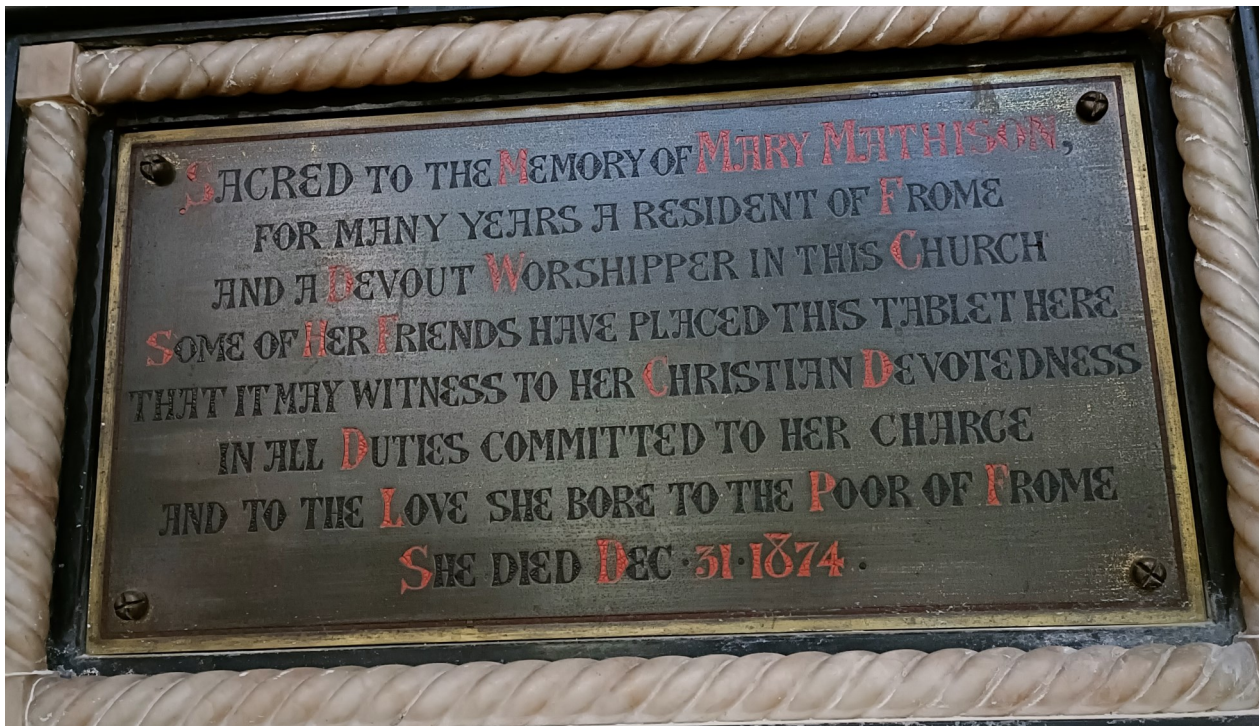 SACRED TO THE MEMORY OF MARY MATHISON,
FOR MANY YEARS A RESIDENT OF FROME
AND A DEVOUT WORSHIPPER IN THIS CHURCH
SOME OF HER FRIENDS HAVE PLACED THIS TABLET HERE
THAT IT MAY WITNESS TO HER CHRISTIAN DEVOTEDNESS
IN ALL DUTIES COMMITTED TO HER CHARGE
AND TO THE LOVE SHE BORE TO THE POOR OF FROME
SHE DIED DEC · 31 · 1874 ·